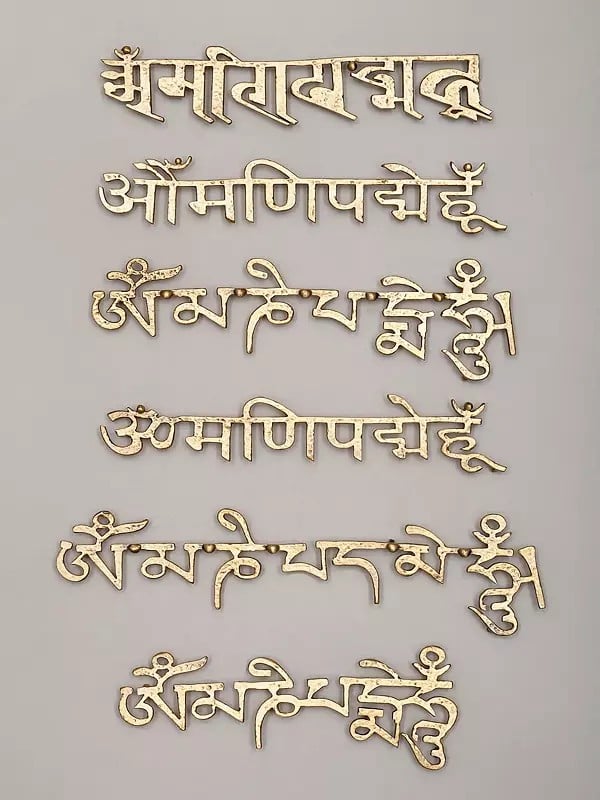 औँमणिपद्मेहूँ
ཨོཾ་མ་ཎི་པ་དྨེ་ཧཱུྃ
ॐमणिपद्मेहूँ
ཨོཾ་མ་ཎི་པད་མེ་ཧཱུྃ
ཨོཾམཎིཔདྨེཧཱུྃ